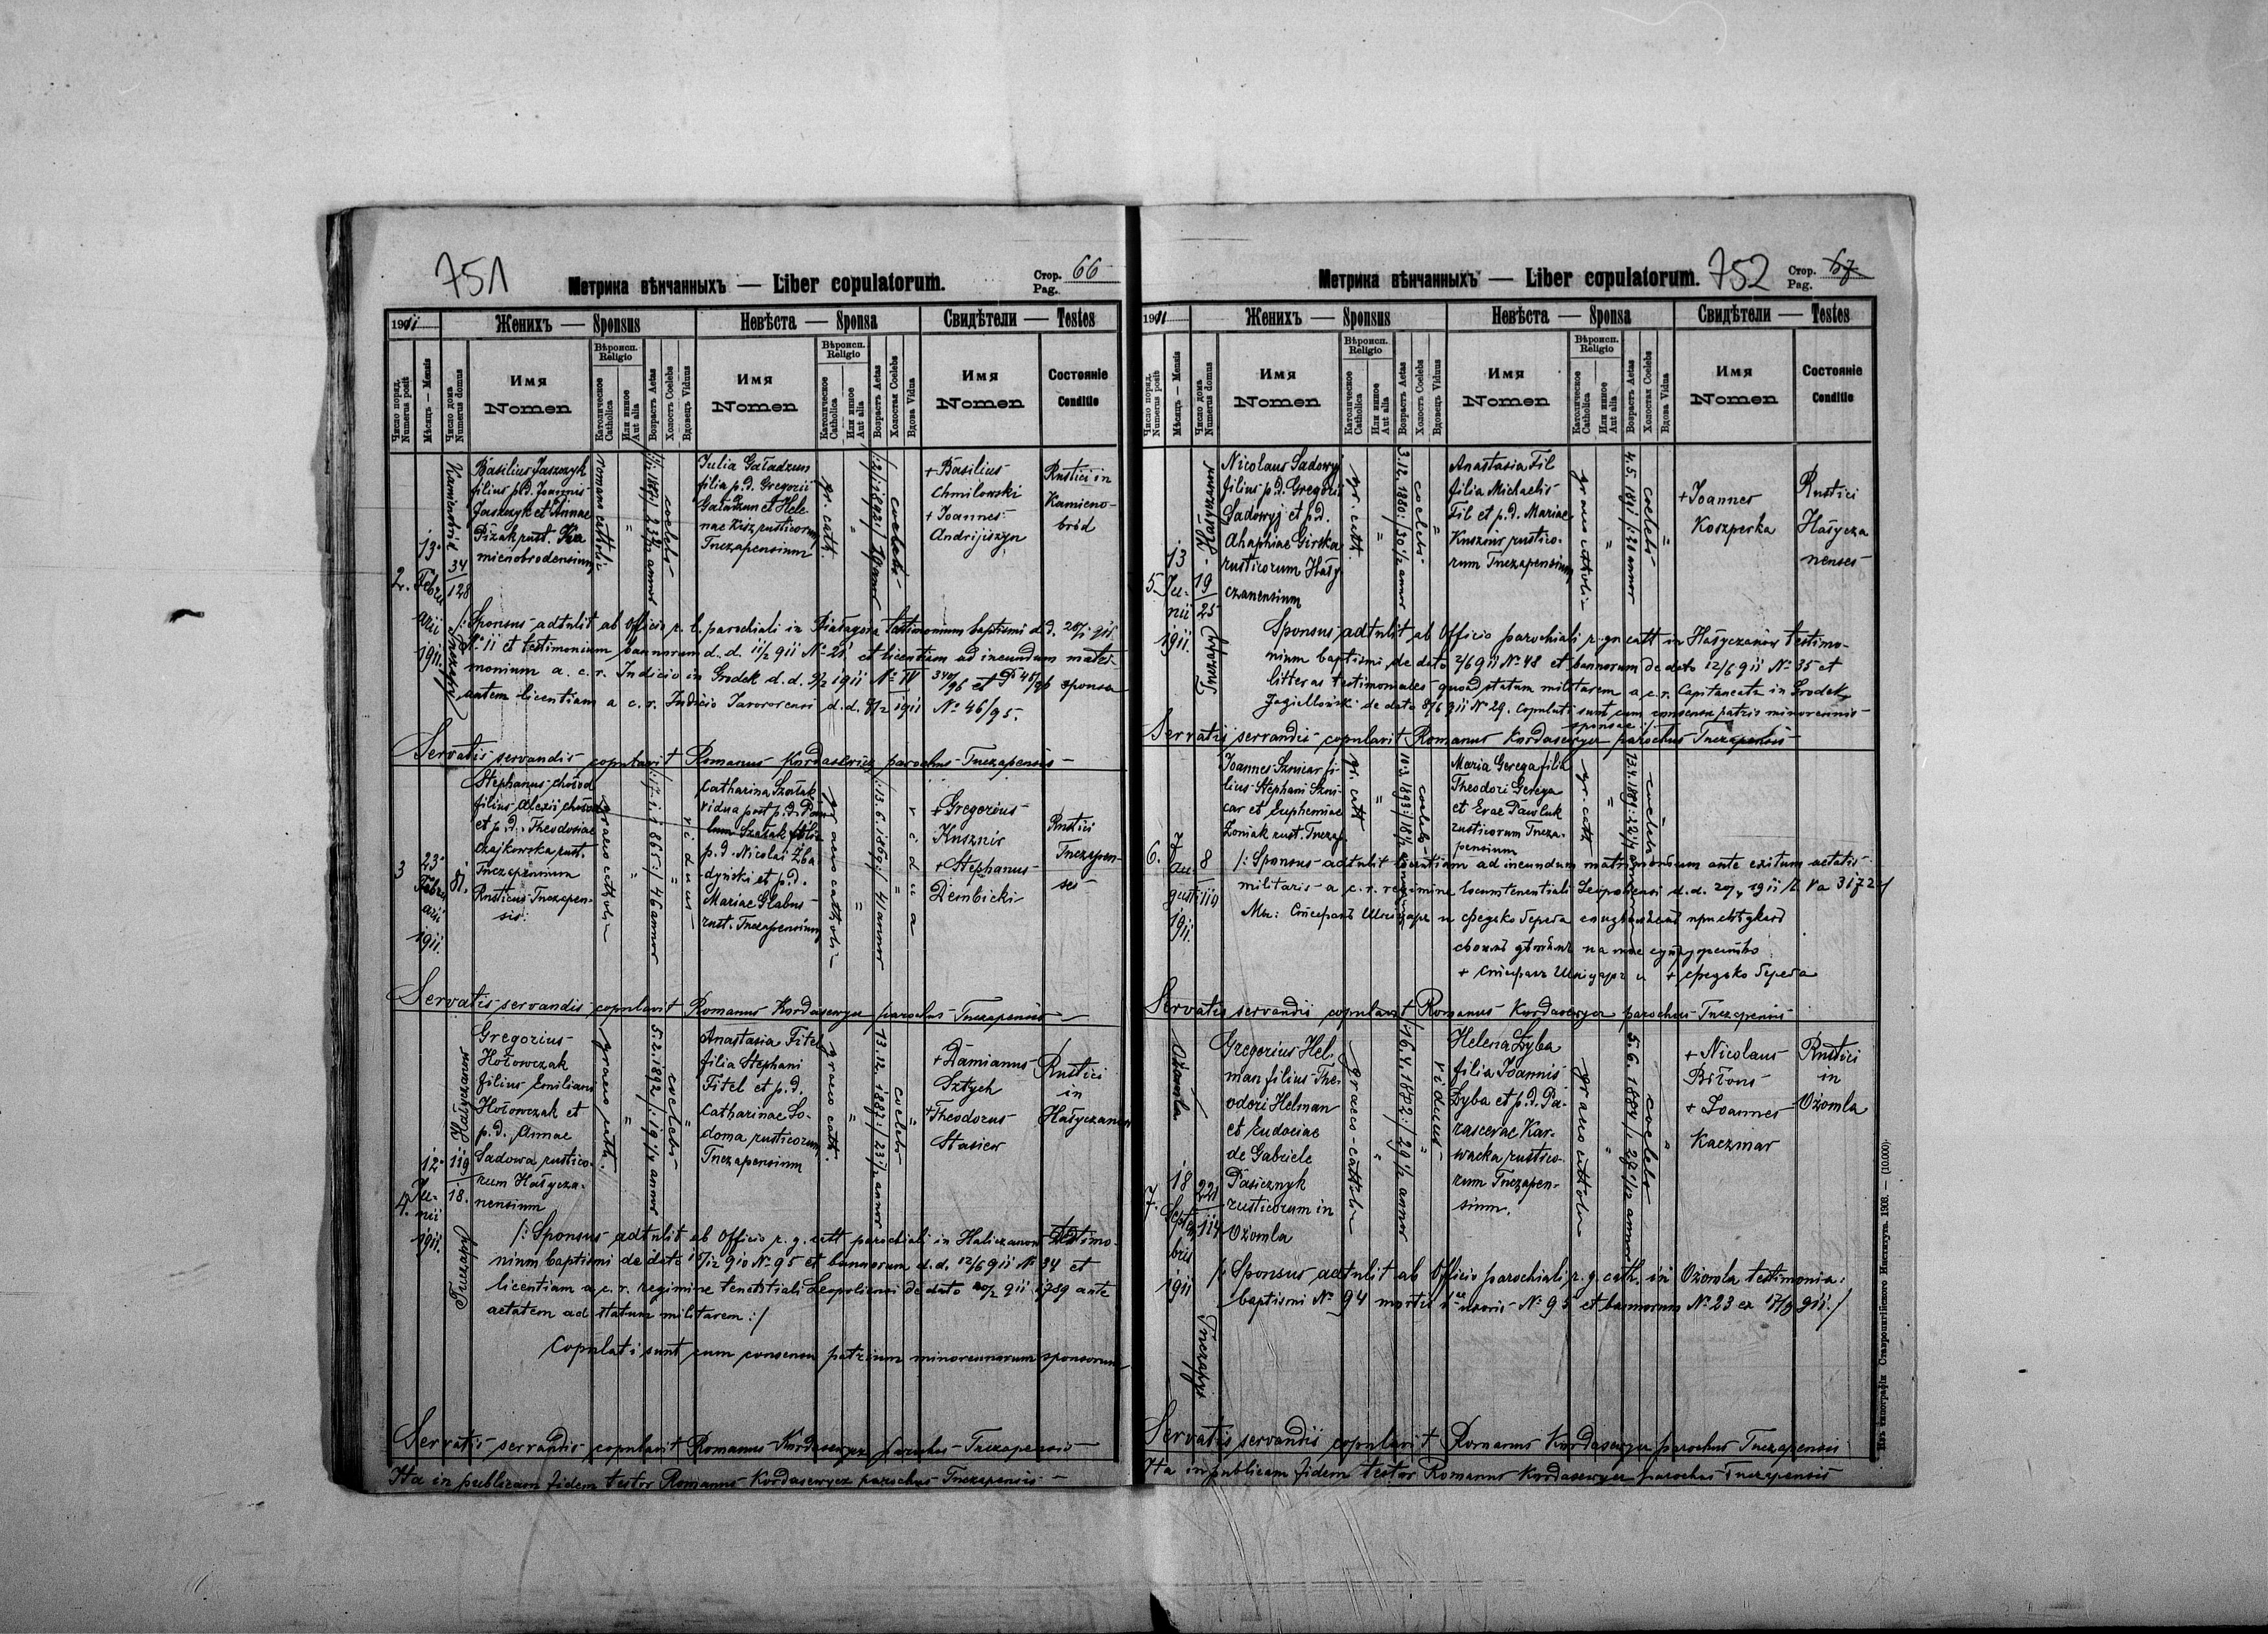 751
Метрика вѣнчанныхъ — Liber copulatorum.
Стор. 66
Pag.
1911
Женихъ — Sponsus
Невѣста — Sponsa
Свидѣтели — Testes
Число поряд.
Numerus posit
Мѣсяцъ — Mensis
Число дома
Numerus domus
Имя
Nomen
Вѣроисп.
Religio
Католическое
Catholica
Или иное
Aut alia
Возрастъ Aetas
Холостъ Coelebs
Вдовецъ Viduus
Имя
Nomen
Вѣроисп.
Religio
Католическое
Catholica
Или иное
Aut alia
Возрастъ Aetas
Холостая Coelebs
Вдова Vidua
Имя
Nomen
Состояніе
Conditio
2.
13
Febru
arii
1911.
34
128
Basilius Jaszczyk
filius p.d. Joannis
Jaszczyk et Annae
Pizak rust. Ka
mienobrodensium
romano cattoli
"
coelebs
Julia Gaładzun
filia p.d. Gregorii
Gaładzun et Hele-
nae Kisz rusticorum
Tnczapensium
gr. catt.
"
coelebs
+ Basilius
Chmilowski
+ Joannes
Andrijiszyn
Rustici in
Kamieno-
bród
/: Sponsus adtulit ab Officio r. l. parochiali in Białagóra testimonium baptismi d.d. 20/1 911
No 11 et testimonium bannorum d.d. 11/2 911 No 21 et licentiam ad ineundum matri-
monium a c. r. Judicio in Grodek d.d. 9/2 1911 No IV 340/96 et P 45/96 sponsa
autem licentiam a c. r. Judicio Javoroviensi d.d. 8/2 1911 No 46/95.
Servatis servandis copulavit Romanus Kordasewicz parochus Tnczapensis
3
23
Febru
arii
1911.
81.
Stephanus Chożod
filius Alexii Chożod
et p.d. Theodosiae
Czajkowska rust.
Tnczapensium
Rusticus Tnczapen-
sis
graeco cattoli
"
46 annor
viduus
Catharina Szałak
vidua post p.d. Pau
lum Szałak filia
p.d. Nicolai Zba
dyński et p.d.
Mariae Głabus
rust. Tnczapensium
graeco cattoli
"
41 annor
vidua
+ Gregorius
Kusznir
+ Stephanus
Dembicki
Rustici
Tnczapen-
ses
Servatis servandis copulavit Romanus Kordasewycz parochus Tnczapensis
4.
12
Ju-
nii
1911.
Hałyczanow
119
18.
Gregorius
Hołowczak
filius Emiliani
Hołowczak et
p.d. Annae
Sadowa rustico-
rum Hałycza-
nensium
graeco catt.
"
5.2.1892/: 19 1/4 annor
coelebs
Anastasia Fitel
filia Stephani
Fitel et p.d.
Catharinae So-
doma rusticorum
Tnczapensium
graeco catt.
"
13.12.1887:/ 23 1/2 annor
coelebs
+ Damianus
Sztych
+ Theodorus
Stasiew
Rustici
in
Hałyczanow
/: Sponsus adtulit ab Officio r. g. catt parochiali in Haliczanow testimo-
nium baptismi de dato 15/12 910 No 95 et bannorum d.d. 12/6 911 No 34 et
licentiam a c. r. regimine tenentiali Leopoliensi de dato 20/2 911 1789 ante
aetatem ad statum militarem :/
Copulati sunt cum consensu patrium minorennorum sponsorum
Servatis servandis copulavit Romanus Kordasewycz parochus Tnczapensis
Ita in publicam fidem testor Romanus Kordasewycz parochus Tnczapensis
752
Метрика вѣнчанныхъ — Liber copulatorum.
Стор. 67
Pag.
1911
Женихъ — Sponsus
Невѣста — Sponsa
Свидѣтели — Testes
Число поряд.
Numerus posit
Мѣсяцъ — Mensis
Число дома
Numerus domus
Имя
Nomen
Вѣроисп.
Religio
Католическое
Catholica
Или иное
Aut alia
Возрастъ Aetas
Холостъ Coelebs
Вдовецъ Viduus
Имя
Nomen
Вѣроисп.
Religio
Католическое
Catholica
Или иное
Aut alia
Возрастъ Aetas
Холостая Coelebs
Вдова Vidua
Имя
Nomen
Состояніе
Conditio
5
13
Ju-
nii
1911.
Hałyczanow
19
25
Tnczapy
Nicolaus Sadowyj
filius p.d. Gregorii
Sadowyj et p.d.
Ahaphiae Girska
rusticorum Hały
czanensium
gr. catt.
"
3.12.1880:/ 30 1/2 annor
coelebs
Anastasia Fil
filia Michaelis
Fil et p.d. Mariae
Kuszour rustico-
rum Tnczapensium
graeco cattoli
"
4.5.1891/: 20 annor
coelebs
+ Joannes
Koszperka
Rustici
Hałycza
nenses
Sponsus adtulit ab Officio parochiali r. gr catt in Hałyczanow testimo-
nium baptismi de dato 2/6 911 No 48 et bannorum de dato 12/6 911 No 35 et
litteras testimoniales quoad statum militarem a c. r. Capitaneatu in Grodek
Jagielloński de dato 8/6 911 No 29. Copulati sunt cum consensu patris minorennis
sponsae :/
Servatis servandis copulavit Romanus Kordasewycz parochus Tnczapensis
6.
7
Au-
gusti
1911.
8
119
Joannes Sznicar fi-
lius Stephani Szni-
car et Euphemiae
Łoniak rust. Tnczap.
gr. catt
"
coelebs
Maria Gerega filia
Theodori Gerega
et Evae Pawluk
rusticorum Tncza-
pensium
gr. catt
"
coelebs
/: Sponsus adtulit licentiam ad ineundum matrimonium ante exitum aetatis
militaris a c. r. regimine locumtenentiali Leopoliensi d.d.
Servatis servandis copulavit Romanus Kordasewycz parochus Tnczapensis
7.
18
Septem
bris
1911
Ożomla
221
114
Tnczapy
Gregorius Hel
man filius The
odori Helman
et Eudociae
de Gabriele
Pasicznyk
rusticorum in
Ożomla
graeco-cattoli
"
29 1/2 annor
viduus
Helena Dyba
filia Joannis
Dyba et p.d. Pa-
rascevae Kar-
wacka rustico-
rum Tnczapen-
sium.
graeco cattoli
"
5.6.1884/: 27 1/12 annor
coelebs
+ Nicolaus
Biłous
+ Joannes
Kaczmar
Rustici
in
Ożomla
/: Sponsus adtulit ab Officio parochiali r. g. cath. in Ożomla testimonia:
baptismi No 94 mortis 1ae uxoris No 95 et bannorum No 23 ex 17/9 911./
Servatis servandis copulavit Romanus Kordasewycz parochus Tnczapensis
Ita in publicam fidem testor Romanus Kordasewycz parochus Tnczapensis
Изъ типографіи Ставропигійского Института. 1908. — (10.000)